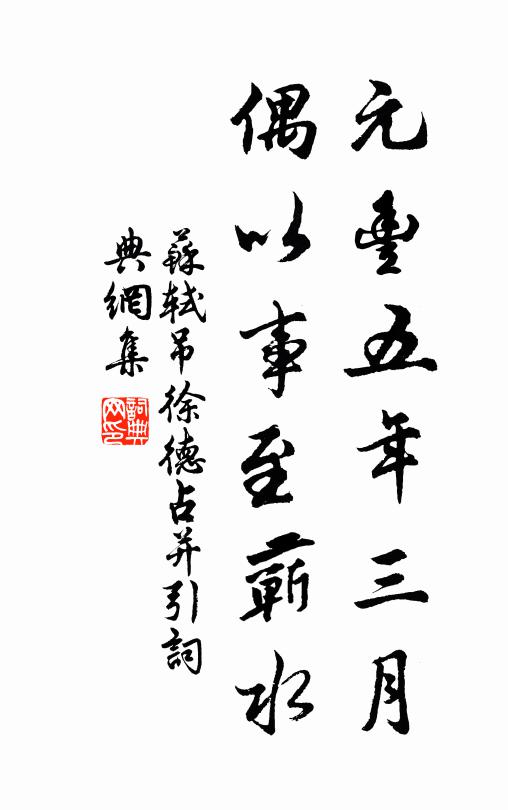 元豐五年三月
偶以事至蘄水
蘇軾吊徐德占并引詞
典網集
詞典
网印